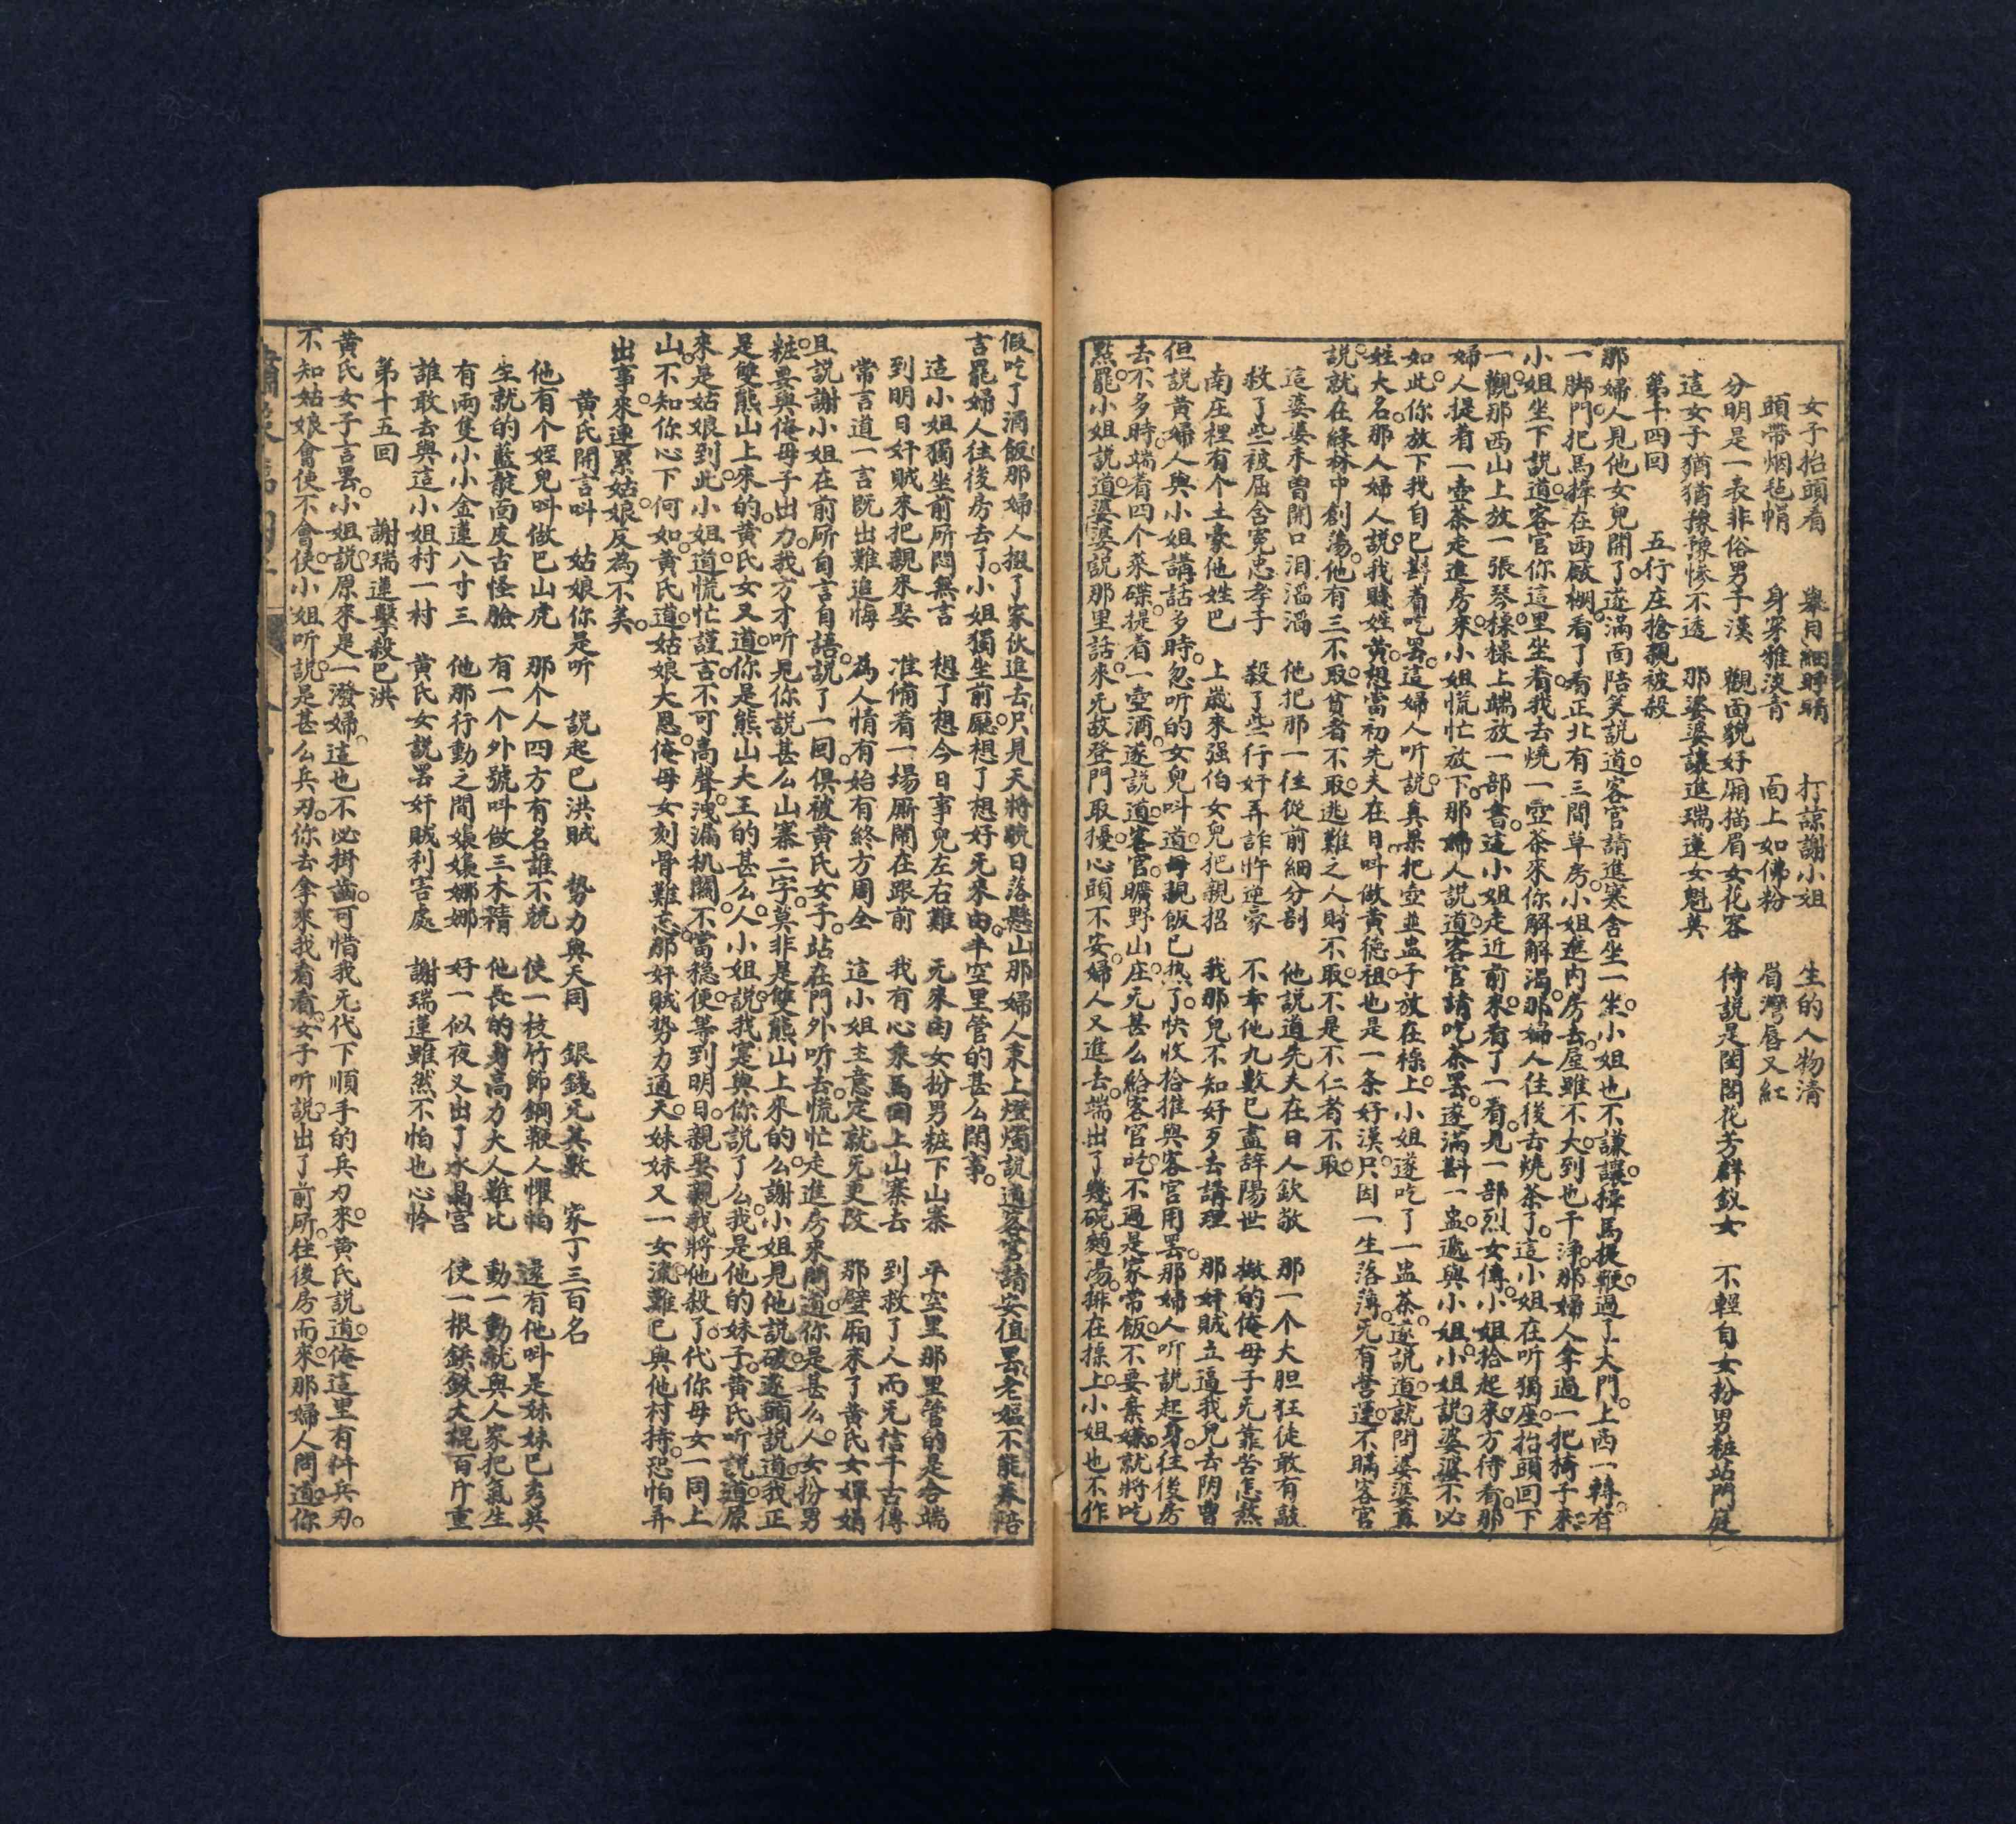 女子抬頭看　舉目細睜睛　打諒謝小姐　生的人物清
頭帶烟毡帽　身穿雅淡青　面上如佛粉　眉灣唇又紅
分明是一表非俗男子漢　觀面貌好厢描眉女花容　待説是閨閣花芳群釵女　不輕自女扮男粧站門庭
這女子猶猶豫豫慘不透　那婆婆讓進瑞蓮女魁英
第十四回　五行庄搶親被殺
那婦人見他女兒開了遂滿面陪笑説道客官請進寒舍坐一坐小姐也不謙讓擇馬提鞭過了大門上西一轉有
一脚門把馬擇在西厫棚看了看正北有三間草房小姐進内房去屋雖不大到也干淨那婦人拿過一把椅子來
小姐坐下説道客官你這里坐着我去燒一壺茶來你解解渴那婦人往後去燒茶了這小姐在听獨座抬頭回下
一觀那西山上放一張琴棹棹上端放一部書這小姐走近前來看了一看見一部烈女傳小姐拾起來方待看那
婦人提着一壺茶走進房來小姐慌忙放下那婦人説道客官請吃茶罢遂滿斟一盅遞與小姐小姐説婆婆不必
如此你放下我自已斟着吃罢這婦人听説真果把壺並盅子放在棹上小姐遂吃了一盅茶遂説道就問婆婆貴
姓大名那人婦人説我賤姓黄想當初先夫在日叫做黄德祖也是一条好漢只因一生落薄旡有营運不瞞客官
説就在綠林中創蕩他有三不取貧者不取逃難之人財不取不是不仁者不取
這婆婆未曾開口泪滔滔　他把那一往從前細分剖　他説道先夫在日人欽敬　那一个大胆狂徒敢有敲
救了些被屈含冤忠孝子　殺了些行奸弄詐忤逆豪　不幸他九數已盡辞陽世　撇的俺母子旡靠苦怎熬
南庄裡有个土豪他姓巴　上歲來强伯女兒把親招　我那兒不知好歹去講理　那奸賊立逼我兒去阴曹
但説黄婦人與小姐講話多時忽听的女兒叫道母親飯已热了快收拾推與客官用罢那婦人听説起身往後房
去不多時端着四个菜碟提着一壺酒遂説道客官曠野山庄旡甚么給客官吃不過是家常飯不要棄嫌就將吃
點罷小姐説道婆婆説那里話來旡故登門取擾心頭不安婦人又進去端出了幾碗麵湯排在棹上小姐也不作
假吃了酒飯那婦人掇了家伙進去只見天將晩日落懸山那婦人秉上燈燭説道客官請安值罢老媼不能奉陪
言罷婦人往後房去了小姐獨坐前廳想了想好旡來由半空里管的甚么閑事
這小姐獨坐前所悶無言　想了想今日事兒左右難　旡來由女扮男粧下山寨　平空里那里管的是合端
到明日奸賊來把親來娶　准俻着一塲厮鬧在跟前　我有心乘馬回上山寨去　到救了人而旡信千古傳
常言道一言既出難追悔　為人情有始有終方周全　這小姐主意定就旡更改　那壁厢來了黄氏女嬋娟
且説謝小姐在前所自言自語説了一回俱被黄氏女子站在門外听去慌忙走進房來問道你是甚么人女扮男
粧要與俺母子出力我方才听見你説甚么山寨二字莫非是雙熊山上來的么謝小姐見他説破遂頭説道我正
是雙熊山上來的黄氏女又道你是熊山大王的甚么人小姐説我寔與你説了么我是他的妹子黄氏听説道原
來是姑娘到此小姐道慌忙謹言不可高聲洩漏机關不當穩便等到明日親娶親我將他殺了代你母女一同上
山不知你心下何如黄氏道姑娘大恩俺母女刻骨難忘那奸賊势力通天妹妹又一女流難已與他村持恐怕弄
出事來連累姑娘反為不美
黄氏開言叫　姑娘你是听　説起巴洪賊　势力與天同　銀錢旡其數　家丁三百名
他有个姪兒叫做巴山虎　那个人四方有名誰不兢　使一枝竹節鋼鞭人懼怕　還有他叫是妹妹巴秀英
生就的藍靛面皮古怪臉　有一个外號叫做三木精　他長的身高力大人難比　動一動就與人家把氣生
有兩隻小小金蓮八寸三　他那行動之間娘娘娜娜　好一似夜叉出了水晶宫　使一根鋲鉄大棍百斤重
誰敢去與這小姐村一村　黄氏女説罢奸賊利害處　謝瑞蓮雖然不怕也心怜
第十五回　謝瑞蓮擊殺巴洪
黄氏女子言罢小姐説原來是一潑婦這也不必掛齒可惜我旡代下順手的兵刃來黄氏説道俺這里有件兵刃
不知姑娘會使不會使小姐听説是甚么兵刃你去拿來我看看女子听説出了前所往後房而來那婦人問道你